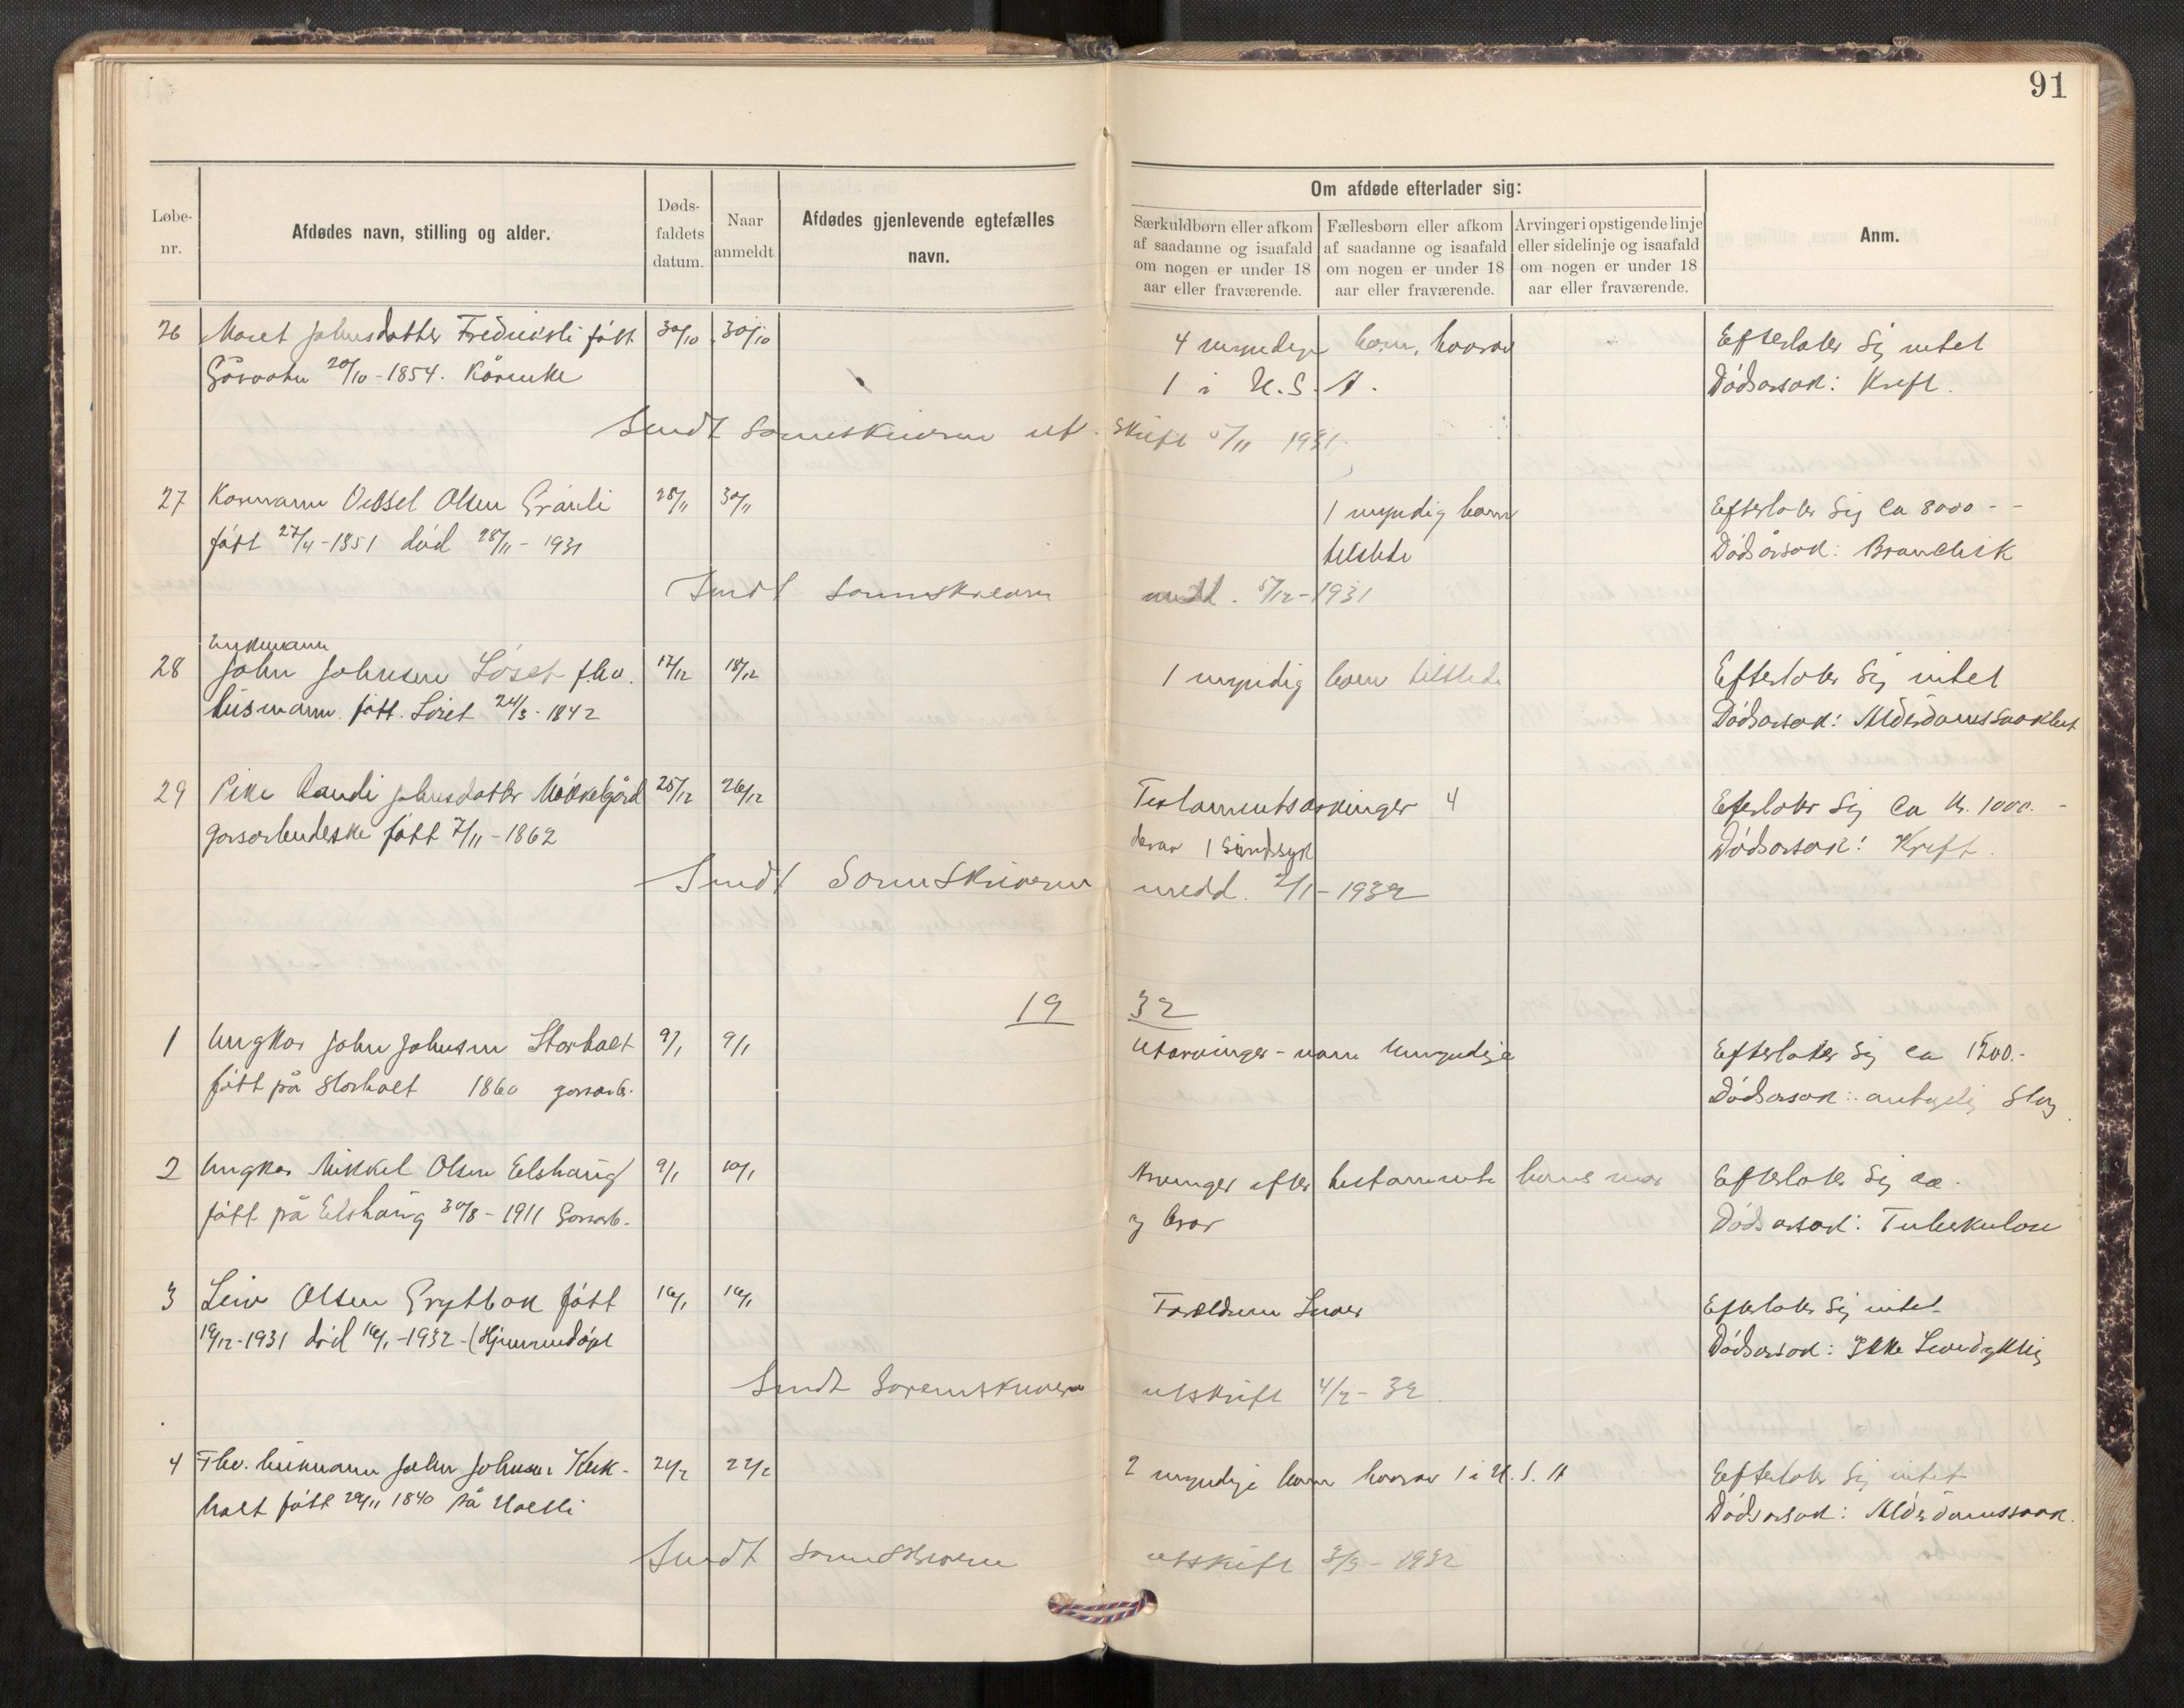 91
Løbe-
nr.
Afdødes navn, stilling og alder.
Døds-
faldets
datum.
Naar
anmeldt
Afdødes gjenlevende egtefælles
navn.
Om afdøde efterlader sig:
Særkuldbørn eller afkom
af saadanne og isaafald
om nogen er under 18
aar eller fraværende.
Fællesbørn eller afkom
af saadanne og isaafald
om nogen er under 18
aar eller fraværende.
Arvinger i opstigende linje
eller sidelinje og isaafald
om nogen er under 18
aar eller fraværende.
Anm.
26 Maret Johnsdatter født 30/10 30/10 4 myndige barn, hvorav Efterlater sig intet
20/10-1854. Kårenke 1 i U.S.A. Dødsårsak: Kreft.
Sendt Sorenskriveren utskrift 5/11 1931.
27 Kårmann Olsen Grånli 28/11 30/11 1 myndig barn Efterlater sig ca 8000 - -
født 27/4-1851 død 28/11-1931 tilstede Dødsårsak:
Sendt sorenskriveren medd. 5/12-1931
Enkemann
28 John Johnsen Løset fhv. 17/12 18/12 1 myndig barn tilstede Efterlater sig intet
husmann. født. Løset 24/3-1842 Dødsårsak: Alderdomssvakhet
29 Pike Randi Johnsdatter Mikkelgård 25/12 26/12 Testamentsarvinger 4 Efterlater sig ca kr. 1000.-
gårsarbeideske født 7/11-1862 derav 1 sindssyk Dødsårsak: Kreft.
Sendt Sorenskriveren medd. 2/1-1932
19 32
1 Ungkar John Johnsen Storholt 9/1 9/1 Utarvinger - umyndige Efterlater sig ca 1500.-
født på Storholt 1860 gårsarb. Dødsårsak: antagelig Slag
2 Ungkar Mikkel Olsen Elshaug 9/1 10/1 Arvinger efter testamente hans mor Efterlater sig
født på Elshaug 30/8-1911 Gårsarb. og bror Dødsårsak: Tuberkulose
3 Leiv Olsen Grytbak født 16/1 16/1 Foreldrene lever Efterlater sig intet
19/12-1931 død 16/1-1932-(Hjemmedøpt Dødsårsak: Ikke Levedyktig
Sendt Sorenskriveren utskrift 4/2-32.
4 Fhv. husmann John Johnsen Kirk- 21/2 22/2 2 myndige barn hvorav 1 i U.S.A Efterlater sig intet
holt født 29/11 1840 på Dødsårsak: Alderdomssvak.
Sendt sorenskriveren utskrift 3/3-1932